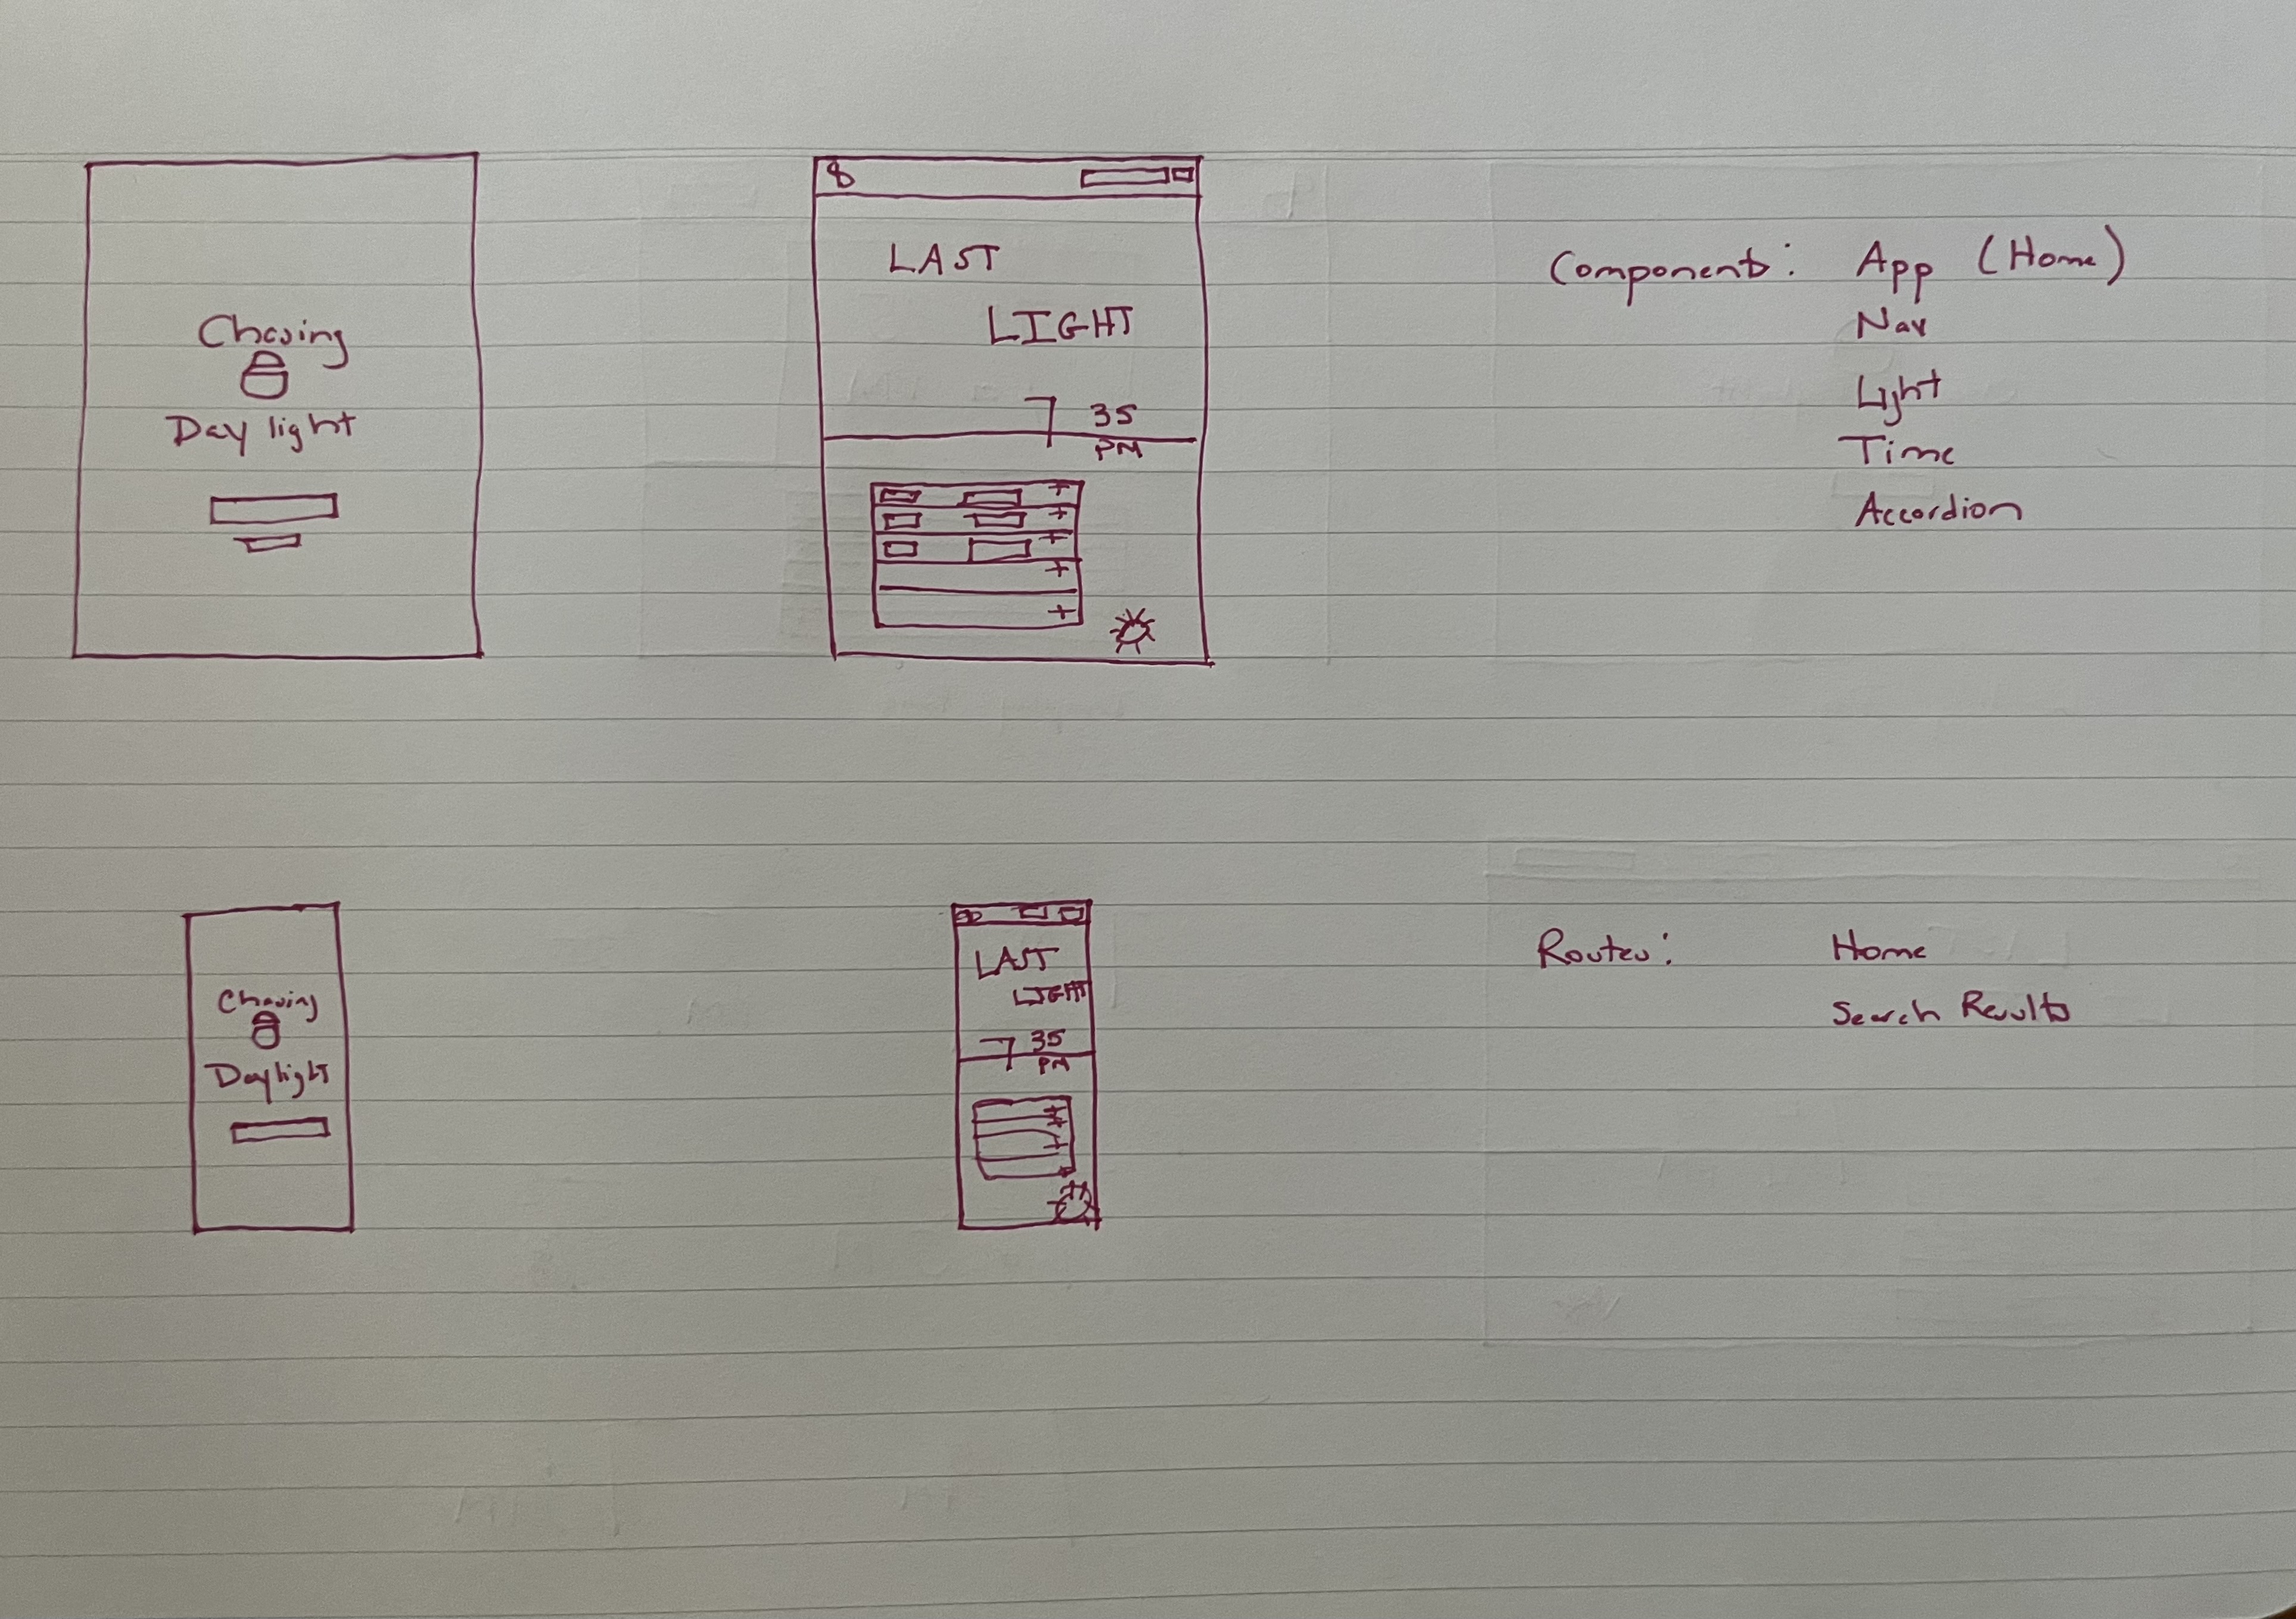 Chasing
Day light
LAST
LIGHT
7 35
PM
+
+
+
+
+
Components: App (Home)
Nav
Light
Time
Accordion
Chasing
Daylight
LAST
LIGHT
7 35
PM
+
+
+
+
Routes: Home
Search Results